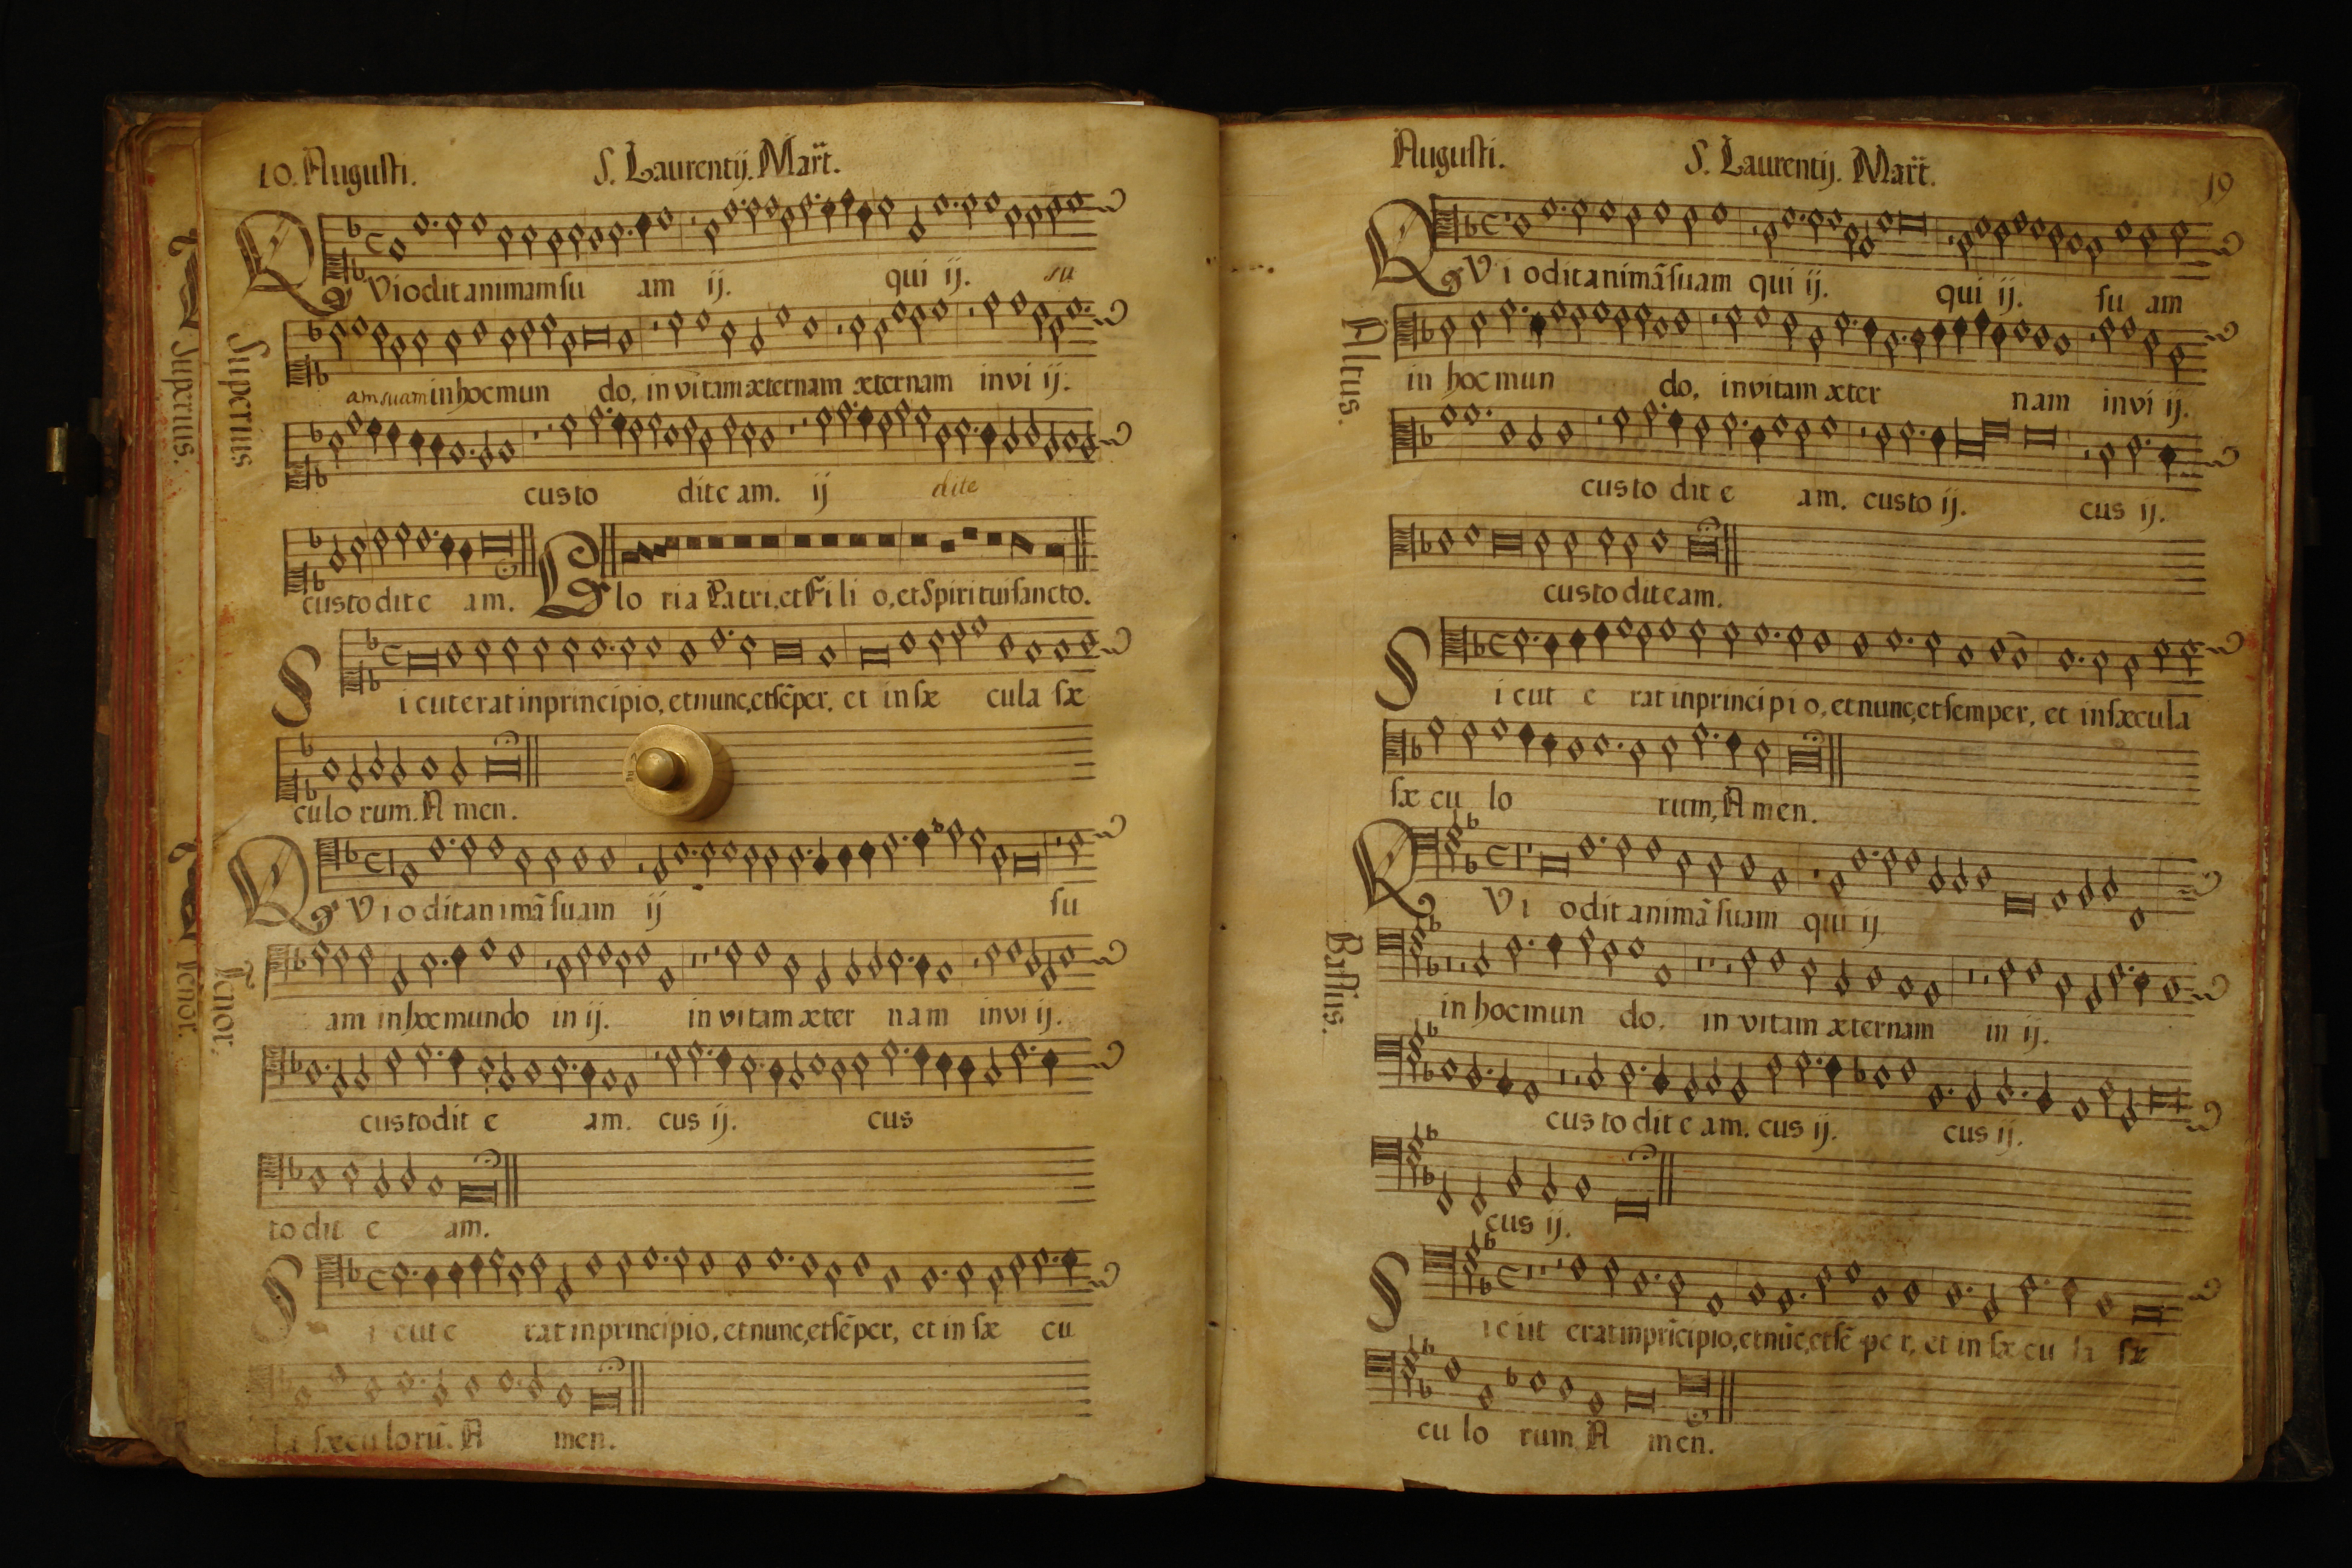 10. Augusti. S. Laurentij. Mart.
Superius
QVi odit animam su am ij. qui ij. su
am suam in hoc mun do, in vitam æternam æternam in vi ij.
custo dit e am. ij dit e
custo dit e am. Glo ria Patri, et Fi li o, et Spiritui sancto.
Si cut erat in principio, et nunc, et sẽper, et in sæ cula sæ
culo rum. A men.
Tenor.
QVi odit animã suam ij su
am in hoc mundo in ij. in vitam æter nam in vi ij.
custo dit e am. cus ij. cus
to dit e am.
Si cut e rat in principio, et nunc, et sẽper, et in sæ cu
la sæcu lorũ. A men.
Superius.
Tenor.
Augusti. S. Laurentij. Mart. 19
Altus.
QVi odit animã suam qui ij. qui ij. su am
in hoc mun do, in vitam æter nam in vi ij.
custo dit e am. custo ij. cus ij.
custo dit e am.
Si cut e rat in princi pi o, et nunc, et semper, et in sæcula
sæ cu lo rum, A men.
Bassus.
QVi odit animã suam qui ij
in hoc mun do, in vitam æternam in ij.
cus to dit e am. cus ij. cus ij.
cus ij.
Si cut erat in prĩcipio, et nũc, et sẽ pe r, et in sæ cu la sæ
cu lo rum A men.